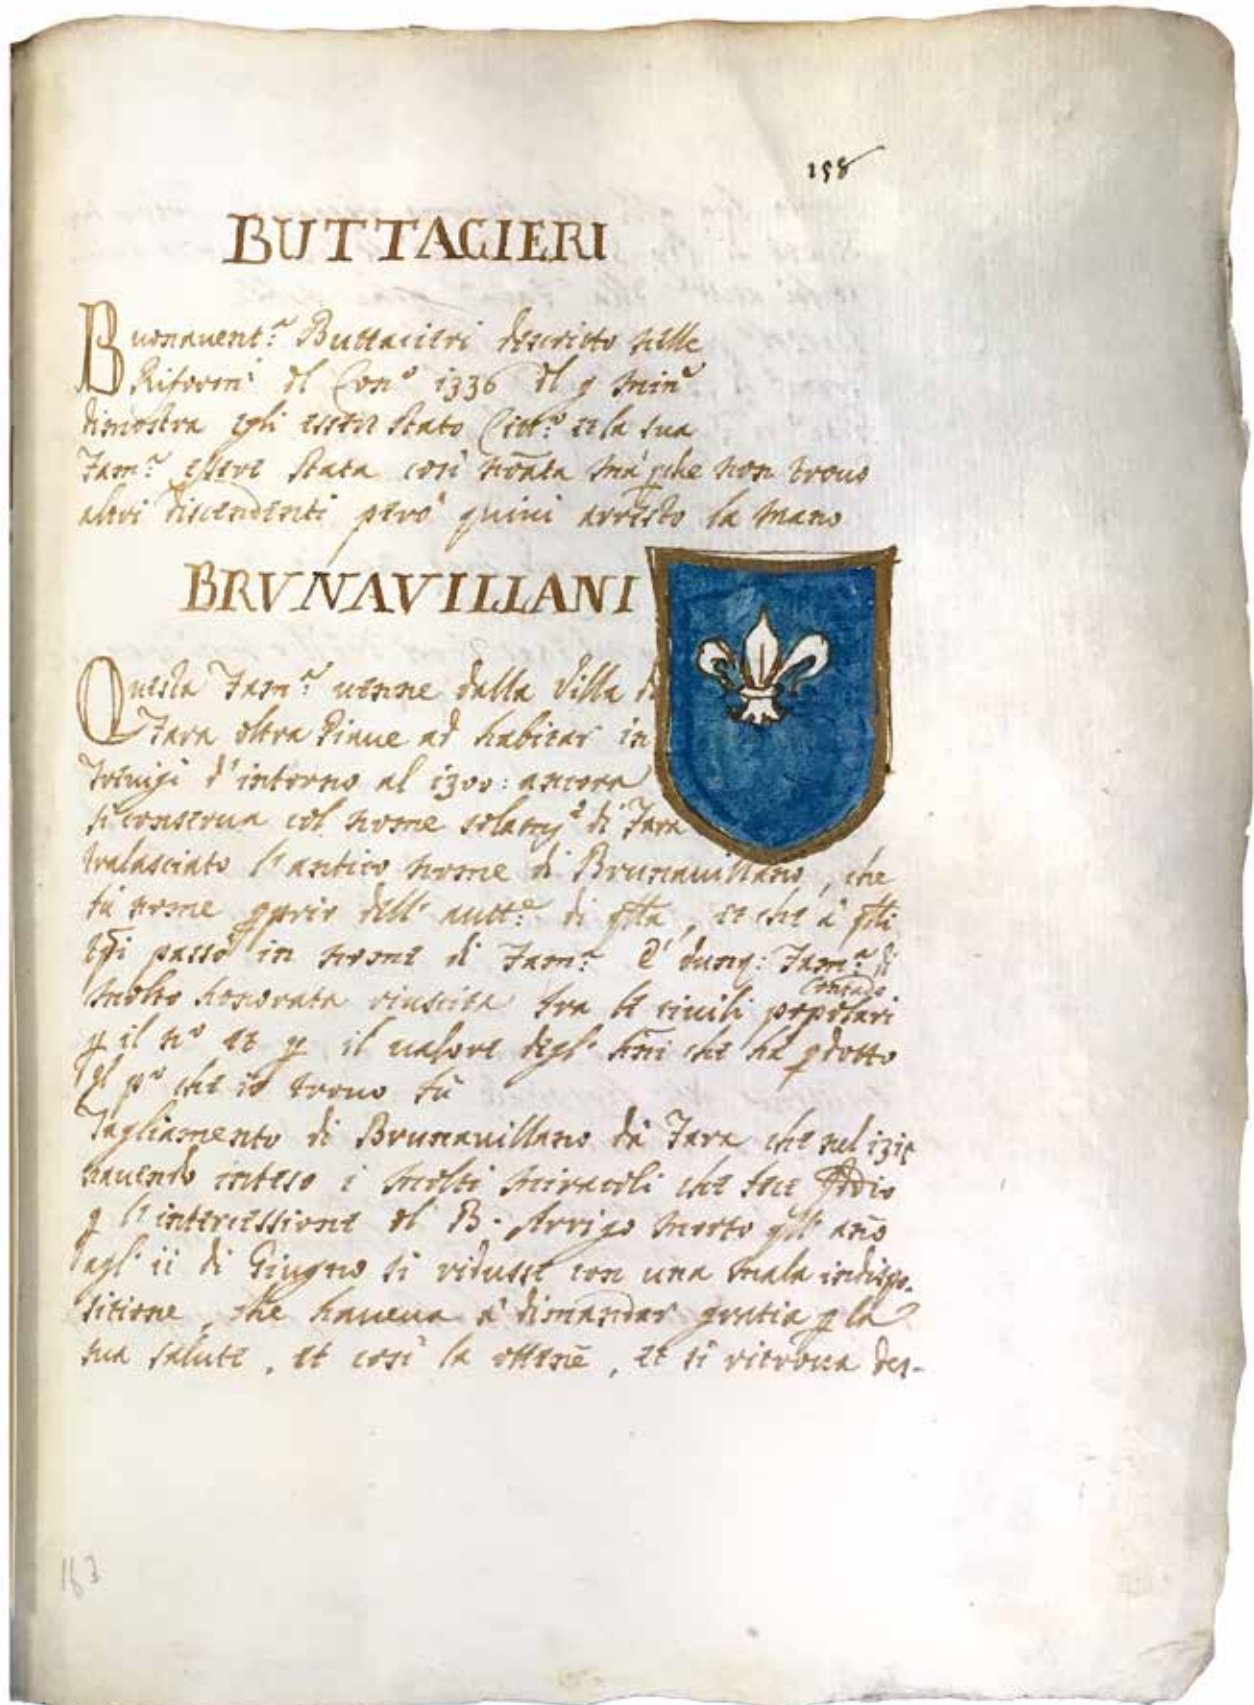 158
BUTTACIERI
Buonauent.ª Buttacieri descritto nelle
Riform.i del Con.o 1336 del q
dimostra egli esser stato Citt.o et la sua
Fam.ª essere stata così nōata mà ꝑche non trouo
altri discendenti però quiui arresto la mano
BRVNAVILLANI
Questa Fam.ª uenne dalla Villa di
Fara oltra Piaue ad habitar in
Treuigi d'intorno al 1300: ancora
si conserua col nome di Fara
tralasciato l'antico nome di Brunauillano, che
fù nome ꝓprio dell' autt.e di qsta, et che à qlli
passò in nome di Fam.ª È dunq: Fam.ª di
Contado
molto honorata riuscita tra le ciuili popolari
ꝑ il n.o et ꝑ il ualore degl' che hà ꝓdotto
p.o che io trouo fù
Tagliamento di Brunauillano dà Fara che nel 1315
hauendo inteso i molti miracoli che fece Iddio
ꝑ l'intercessione del B. Arrigo morto qll' año
agl' ii di Giugno si ridusse con una mala indispo-
sitione, che haueua à dimandar gratia ꝑ la
sua salute, et così la ottenē, et si ritroua des-
163